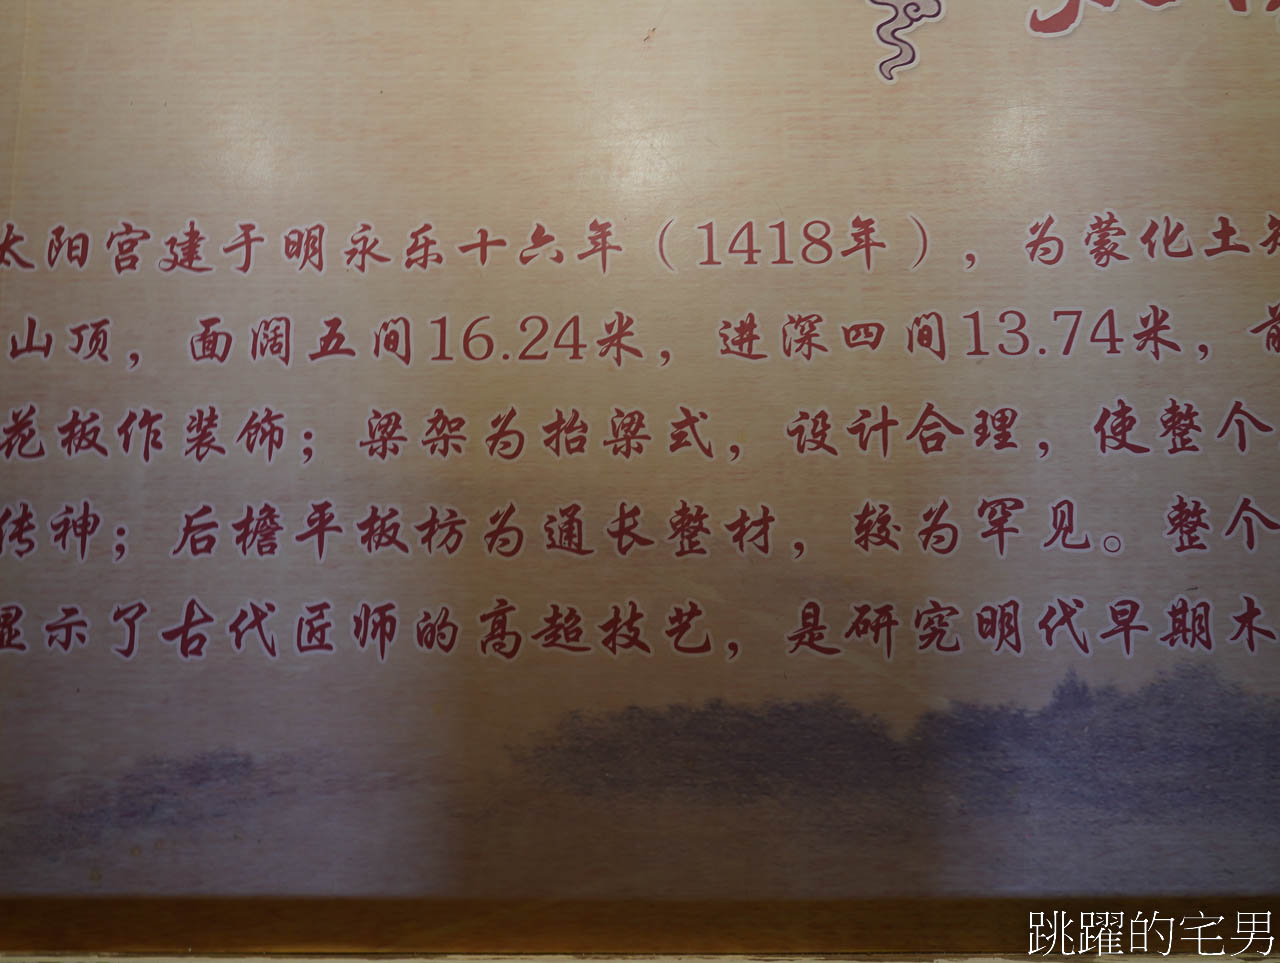 太阳宫建于明永乐十六年（1418年），为蒙化土
山顶，面阔五间16.24米，进深四间13.74米，前
花板作装饰；梁架为抬梁式，设计合理，使整个
传神；后檐平板枋为通长整材，较为罕见。整个
显示了古代匠师的高超技艺，是研究明代早期木
跳躍的宅男